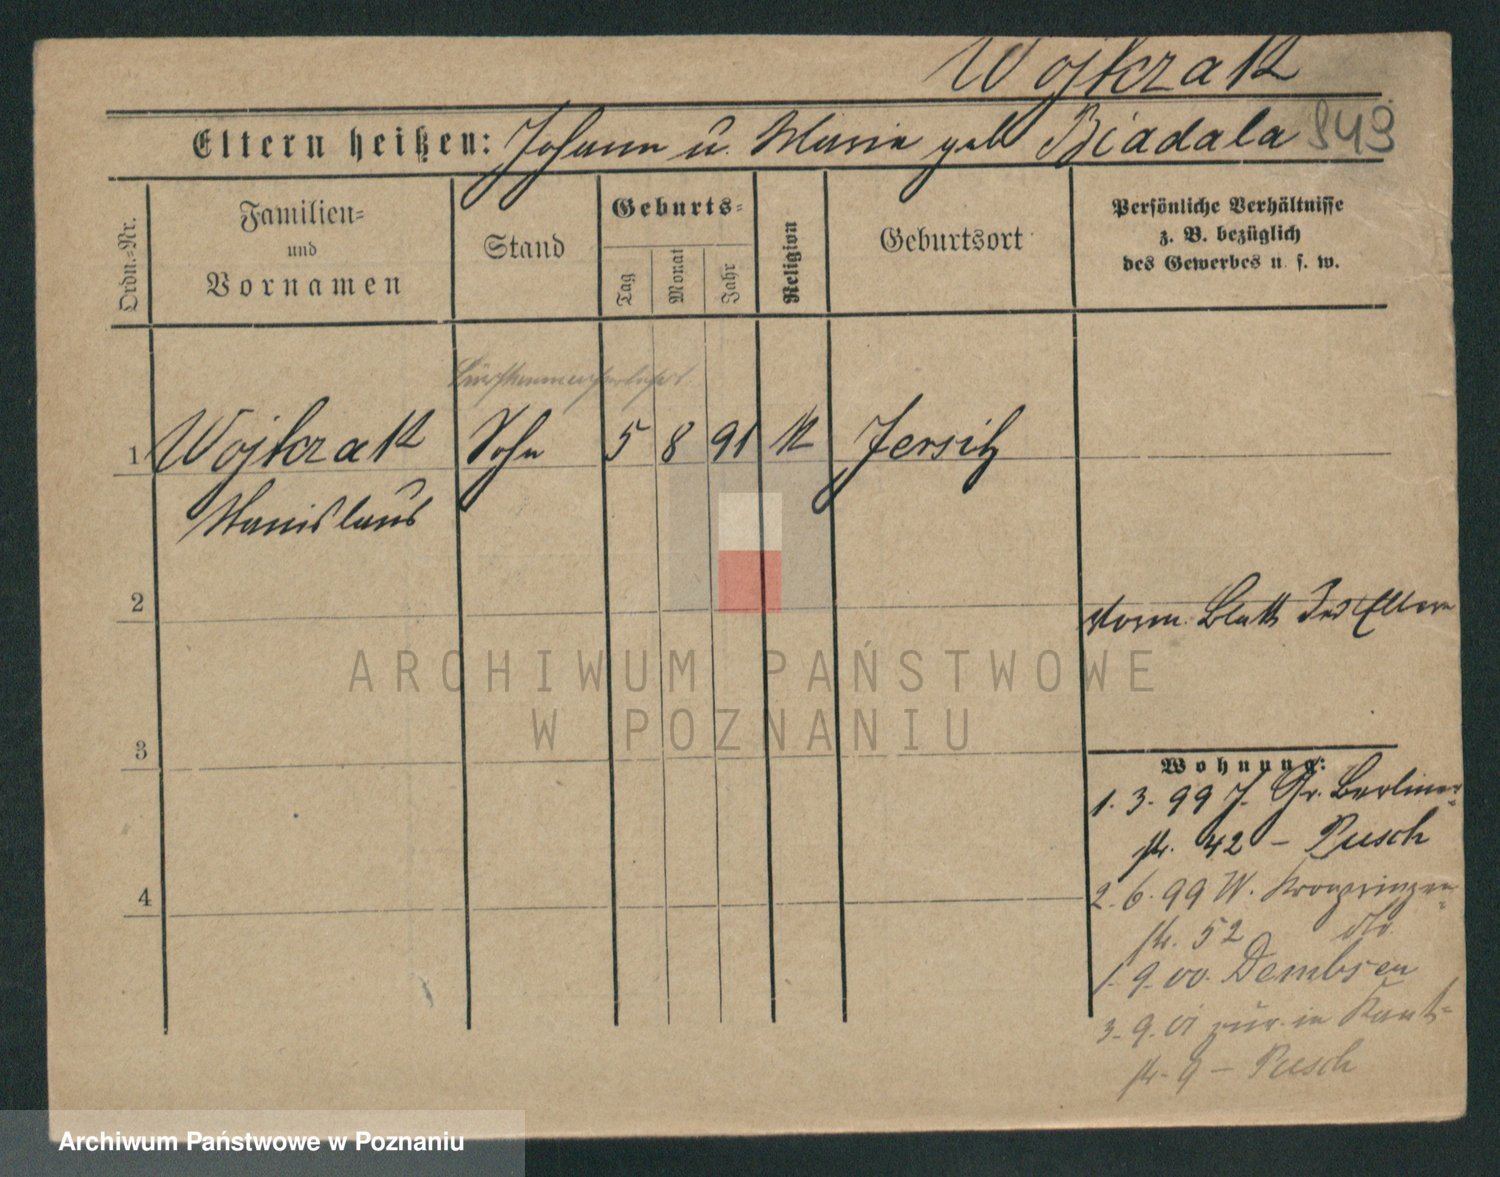 Wojkzak
Eltern heißen: Johann u. Maria geb Biadala 943
Ordn.-Nr.
Familien-
und
Vornamen
Stand
Geburts-
Tag
Monat
Jahr
Religion
Geburtsort
Persönliche Verhältnisse
z. B. bezüglich
des Gewerbes u. s. w.
1 Wojkzak Sohn 5 8 91 K Jersitz
Stanislaus
2
Blatt des Eltern
ARCHIWUM PAŃSTWOWE
W POZNANIU
3
Wohnung:
1. 3. 99 J. Gr. Berliner-
str. 42 – Pusch
2. 6. 99 W. Kronprinzen-
str. 52 do.
4
1. 9. 00. Dembsen
3. 9. 01 zur. in Kant-
str. 9 – Pusch
Archiwum Państwowe w Poznaniu